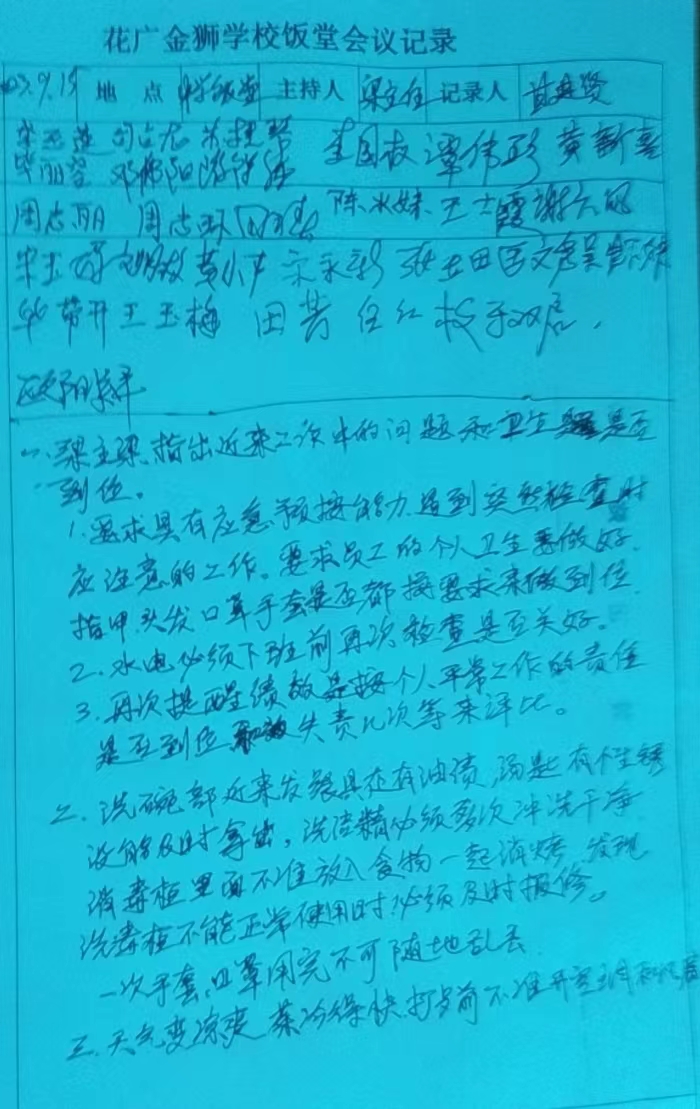 花广金狮学校饭堂会议记录
9.15 地点 饭堂 主持人 梁主任 记录人
李国权 谭伟彩 黄新喜
周志丽 周志环 陈水妹 王士霞 谢
宋永彩 张士田
带开 王玉梅 田芳 任红枝
欧阳
一、梁主梁指出近来工次中的问题和卫生是否
到位。
1.要求具有应急预按能力遇到突然检查时
应注意的工作。要求员工的个人卫生要做好.
指甲.头发口罩手套是否都按要求来做到位.
2.水电必须下班前再次检查是否关好。
3.再次提醒绩效是按个人平常工作的责任
是否到位失责几次等来评比。
二.洗碗部近来发餐具还有油渍,汤匙有个生锈
没能及时拿出,洗洁精必须多次冲洗干净
消毒柜里面不准放入食物一起消烤,发现
洗毒柜不能正常使用时必须及时报修。
一次手套,口罩用完不可随地乱丢
三.天气变凉爽 菜冷得快.打前不准开